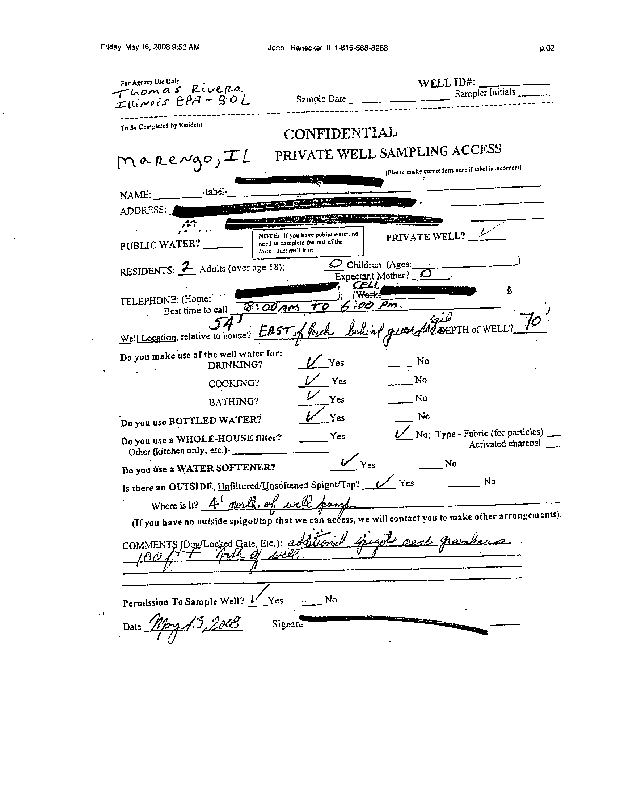 Friday May 16, 2008 9:53 AM John Henecker II 1-815-568-8288 p.02
For Agency Use Only
WELL ID#:
Thomas Rivera
Illinois EPA - BOL
Sample Date Sampler Initials
To Be Completed by Resident
CONFIDENTIAL
Marengo, IL PRIVATE WELL SAMPLING ACCESS
(Please make corrections here if label is incorrect)
NAME: label
ADDRESS:
NOTE: If you have public water, no
need to complete the rest of the
form.
PUBLIC WATER? PRIVATE WELL? ✓
RESIDENTS: 2 Adults (over age 18); 0 Children (Ages:
Expectant Mother? 0
TELEPHONE: (Home: ); CELL (Work:
Best time to call 8:00 AM TO 6:00 PM.
Well Location, relative to house? 54' EAST of back behind DEPTH of WELL? 70'
Do you make use of the well water for:
DRINKING? ✓ Yes No
COOKING? ✓ Yes No
BATHING? ✓ Yes No
Do you use BOTTLED WATER? ✓ Yes No
Do you use a WHOLE-HOUSE filter? Yes ✓ No; Type - Fabric (for particles)
Other (kitchen only, etc.)- Activated charcoal
Do you use a WATER SOFTENER? ✓ Yes No
Is there an OUTSIDE, Unfiltered/Unsoftened Spigot/Tap? ✓ Yes No
Where is it? 4' north of well pump
(If you have no outside spigot/tap that we can access, we will contact you to make other arrangements).
COMMENTS (Dog/Locked Gate, Etc.): additional spigots near greenhouse
100 ft + north of well.
Permission To Sample Well? ✓ Yes No
Date May 13, 2008 Signature